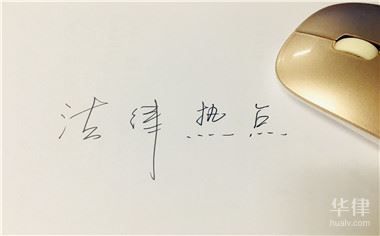 法律热点
华律
hualv.com